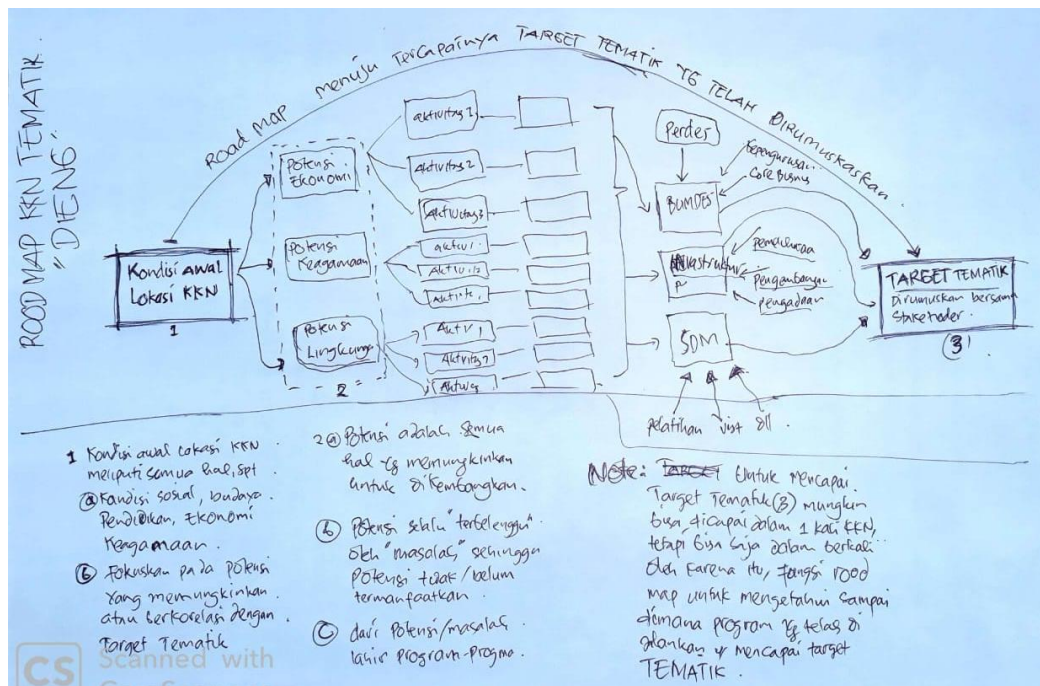 ROODMAP KKN TEMATIK.
"DIENG"
ROAD MAP menuju Tercapainya TARGET TEMATIK YG TELAH DIRUMUSKASKAN.
Kondisi AWAL
Lokasi KKN
1
Potensi
Ekonomi
Potensi
Keagamaan
Potensi
Lingkung
2
aktivitas 1
Aktivitas 2
Aktivitas 3
aktiv 1
Aktiv 2
Aktiv 1
Aktvitas
Perdes
BUMDES
Kepengurusan
Core Busnus
Pemeliharaa
Pengembangan
pengadaan
SDM
pelatihan
dll.
TARGET TEMATIK
Dirumuskan bersama
Stakeholder.
3
1 Kondisi awal Lokasi KKN
meliputi semua hal, spt
a Kondisi sosial, budaya.
Pendidikan, Ekonomi
Keagamaan.
b Fokuskan pada potensi
yang memungkinkan
atau berkorelasi dengan
Target Tematik
2 a Potensi adalah semua
hal yg memungkinkan
untuk dikembangkan.
b Potensi selalu "terbelenggu"
oleh "masalah," sehingga
Potensi tidak/belum
termanfaatkan.
C dari Potensi/masalah
lahir program-progma.
Note: Untuk mencapai
Target Tematik (3) mungkin
bisa dicapai dalam 1 kali KKN,
tetapi bisa saja dalam berkali
Oleh karena itu, fungsi road
map untuk mengetahui sampai
dimana program yg telah di
jalankan mencapai target
TEMATIK.
CS Scanned with